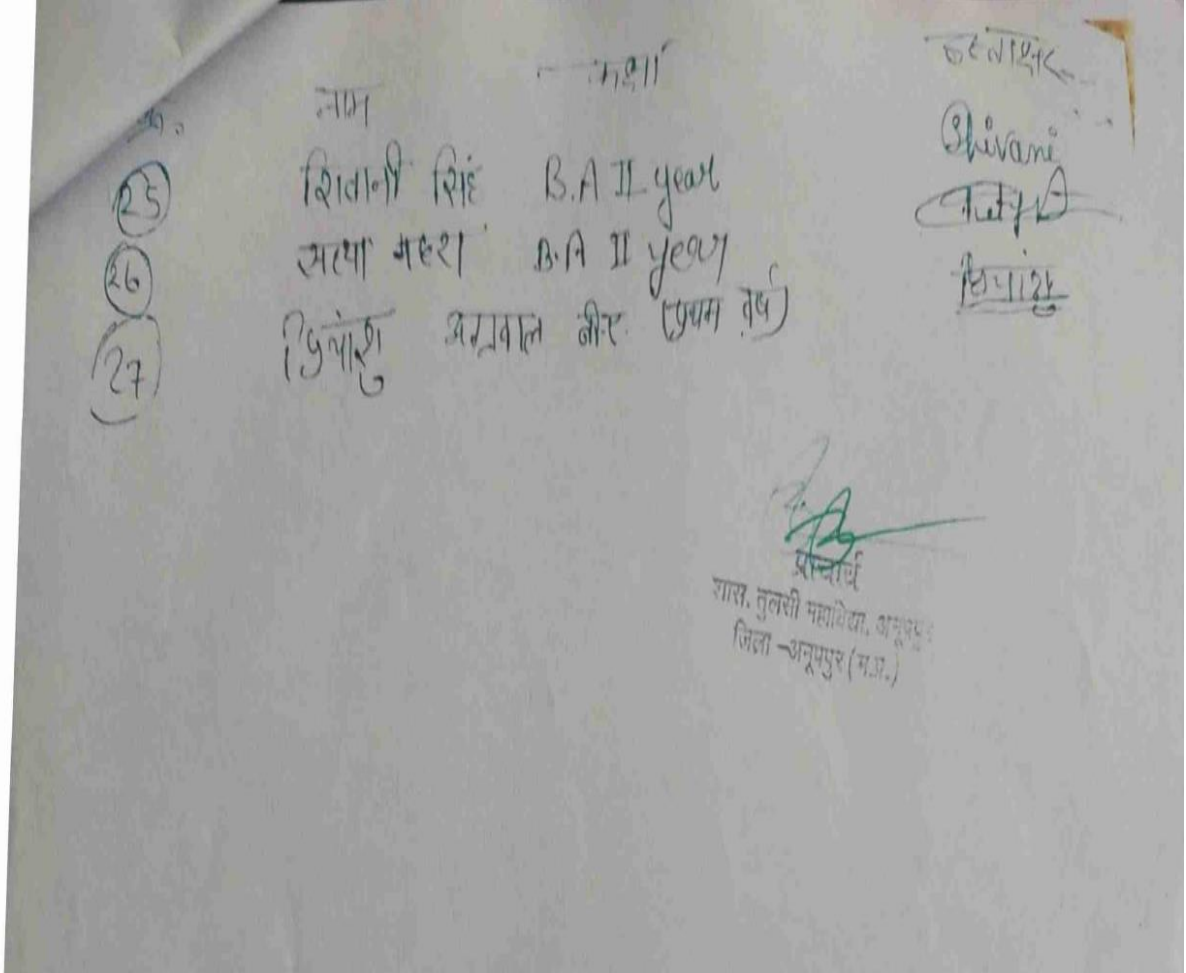 क्र. नाम कक्षा हस्ताक्षर
25 शिवानी सिंह B.A II year Shivani
26 सत्या महरा B.A II year
27 प्रियांशु अग्रवाल बीए (प्रथम वर्ष) प्रियांशु
प्राचार्य
शास. तुलसी महाविद्या. अनूपपुर
जिला -अनूपपुर (म.प्र.)